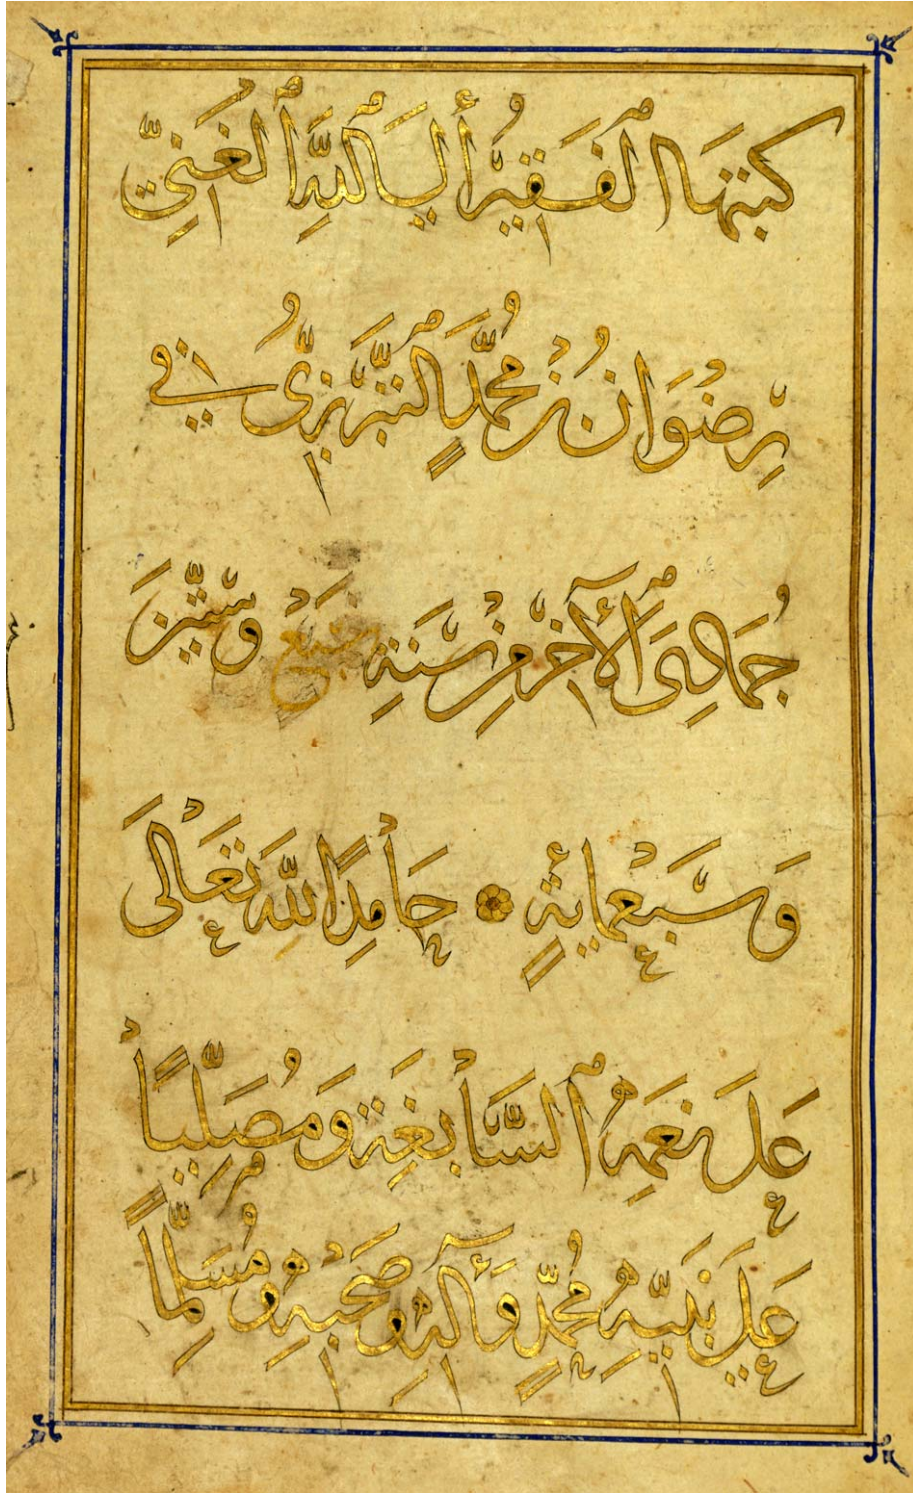 كَتَبَتهَا ٱلْفَقِيرُ إِلَى ٱللَّهِ ٱلْغَنِيِّ
رِضْوَانُ بْنُ مُحَمَّدٍ ٱلتَّبْرِيزِيُّ فِي
جُمَادَى ٱلْآخِرِ مِنْ سَنَةِ سَبْعٍ وَسِتِّينَ
وَسَبْعمِايَةٍ حَامِدًا لِلَّهِ تَعَالَى
عَلَى نِعَمِهِ ٱلسَّابِغَةِ وَمُصَلِّيًا
عَلَى نَبِيِّهِ مُحَمَّدٍ وَآلِهِ وَصَحْبِهِ وَمُسَلِّمًا